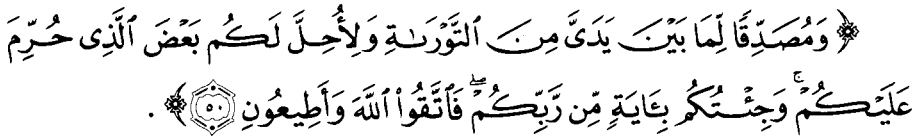 ﴿ وَمُصَدِّقًا لِّمَا بَيْنَ يَدَيَّ مِنَ ٱلتَّوْرَىٰةِ وَلِأُحِلَّ لَكُم بَعْضَ ٱلَّذِى حُرِّمَ
عَلَيْكُمْ ۚ وَجِئْتُكُم بِـَٔايَةٍ مِّن رَّبِّكُمْ ۖ فَٱتَّقُوا۟ ٱللَّهَ وَأَطِيعُونِ ۝٥٠ ﴾ .